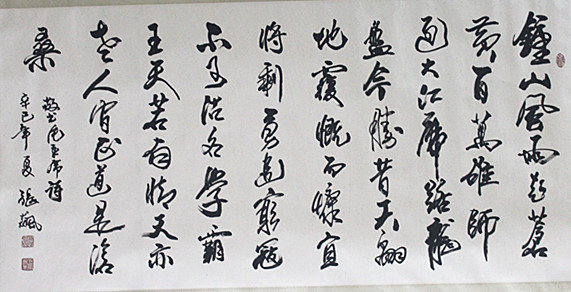 鍾山風雨起蒼
黃百萬雄師
過大江虎踞龍
盤今勝昔天翻
地覆慨而慷宜
將剩勇追窮寇
不可沽名學霸
王天若有情天亦
老人間正道是滄
桑
敬书毛主席詩
辛巳年夏 張飆